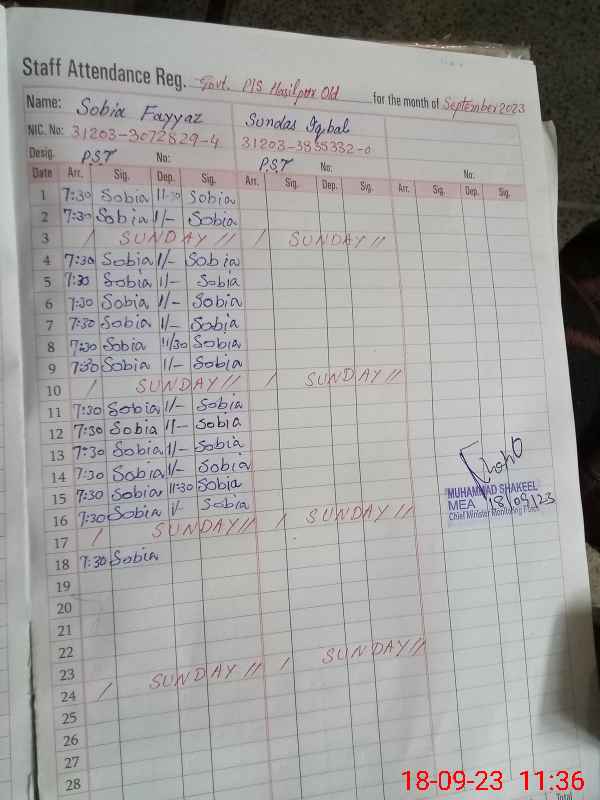 Staff Attendance Reg. Govt. P/S Hasilpur Old for the month of September 2023
Name: Sobia Fayyaz Sundas Iqbal
NIC. No: 31203-3072829-4 31203-3835332-0
Desig. P.S.T No: P.S.T No: No:
Date Arr. Sig. Dep. Sig. Arr. Sig. Dep. Sig. Arr. Sig. Dep. Sig.
1 7:30 Sobia 11:30 Sobia
2 7:30 Sobia 1/- Sobia
3 / SUNDAY // / SUNDAY //
4 7:30 Sobia 1/- Sobia
5 7:30 Sobia 1/- Sobia
6 7:30 Sobia 1/- Sobia
7 7:30 Sobia 1/- Sobia
8 7:30 Sobia 11/30 Sobia
9 7:30 Sobia 1/- Sobia
10 / SUNDAY // / SUNDAY //
11 7:30 Sobia 1/- Sobia
12 7:30 Sobia 1/- Sobia
13 7:30 Sobia 1/- Sobia
14 7:30 Sobia 1/- Sobia
15 7:30 Sobia 11:30 Sobia
16 7:30 Sobia 1/- Sobia
MUHAMMAD SHAKEEL
MEA 18/09/23
Chief Minister Monitoring Force
17 / SUNDAY // / SUNDAY //
18 7:30 Sobia
19
20
21
22
23
24 / SUNDAY // / SUNDAY //
25
26
27
28
Total
18-09-23 11:36